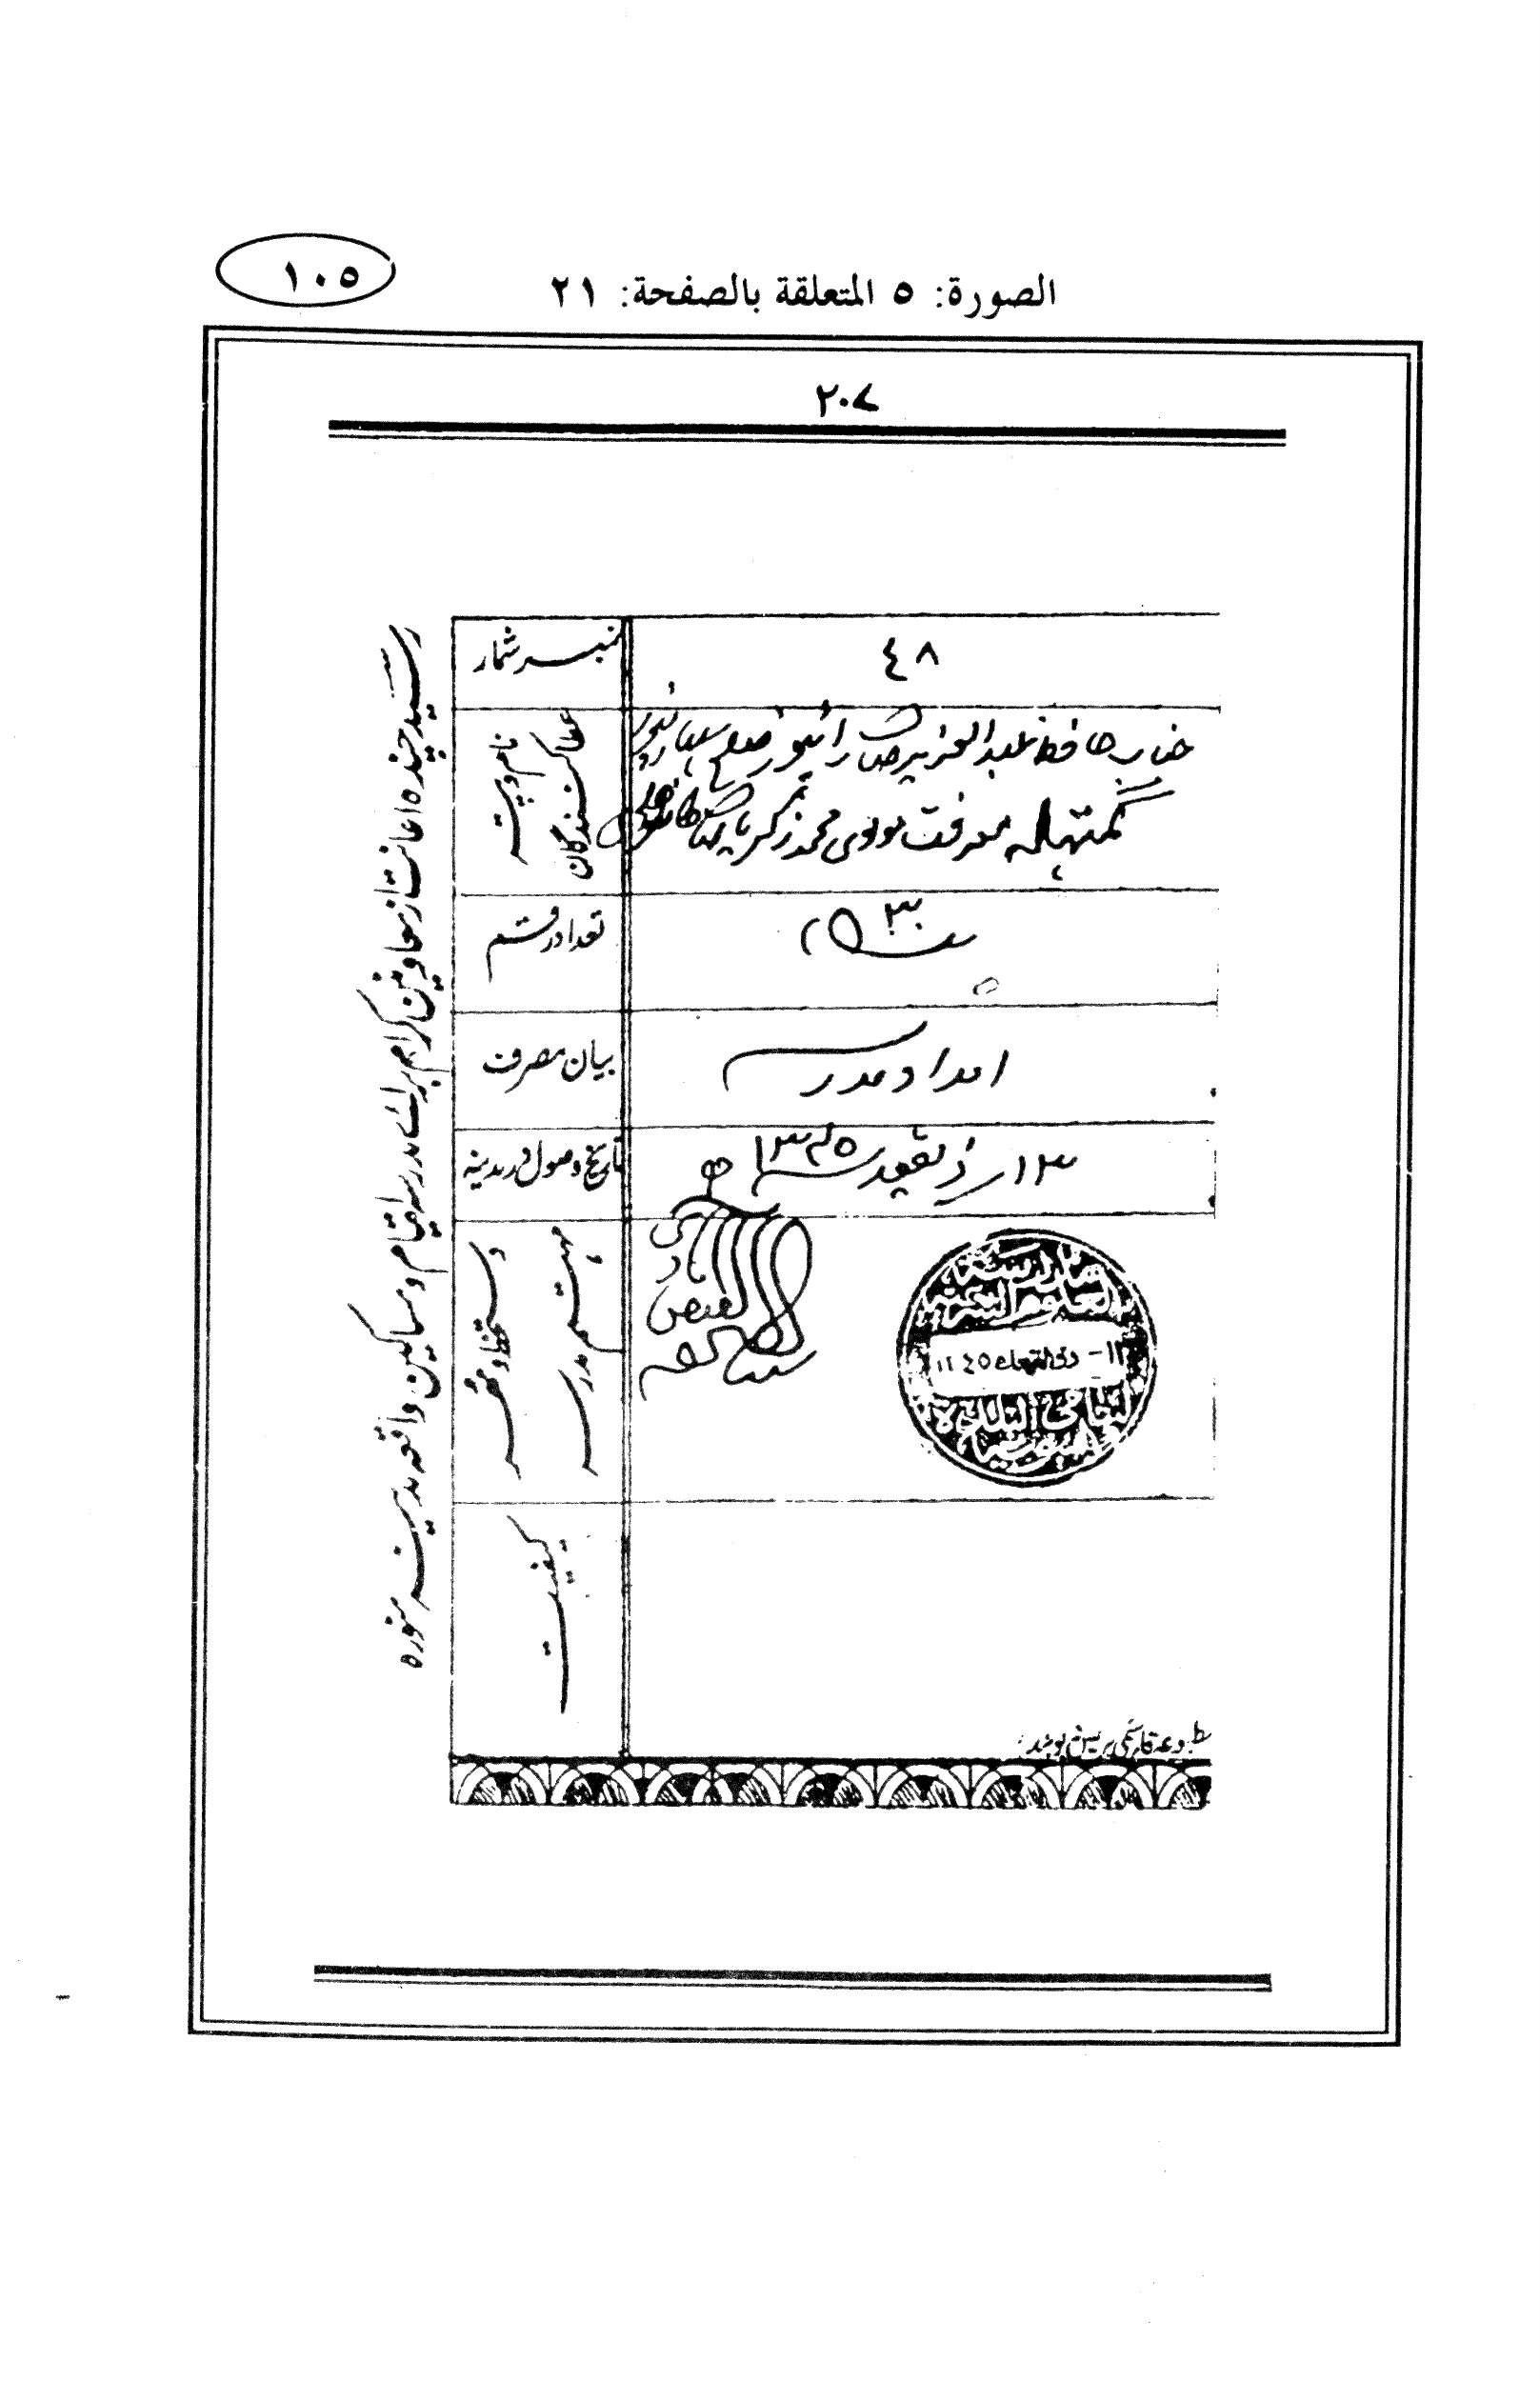 ١٠٥
الصورة: ٥ المتعلقة بالصفحة: ٢١
٢٠٧
رسید چندہ اعانت از معاونین کرام برائے مدرسہ ایتام و مساکین واقعہ مدینہ منورہ
نمبر شمار
٤٨
نام و پتہ عطا کنندگان
جناب حافظ عبد العزیز صاحب رائپور ضلع سہارنپور
گمتہلہ معرفت مولوی محمد زکریا صاحب کاندھلوی
تعداد رقم
٣٠
بیان مصرف
امداد مدرسہ
تاریخ وصول در مدینہ
١٣ ذیقعدہ ١٣٤٥
دستخط و مہر مہتمم مدرسہ
مدرسة العلوم الشرعية
ذی القعدہ
کیفیت
مطبوعہ قاسمی پریس دیوبند